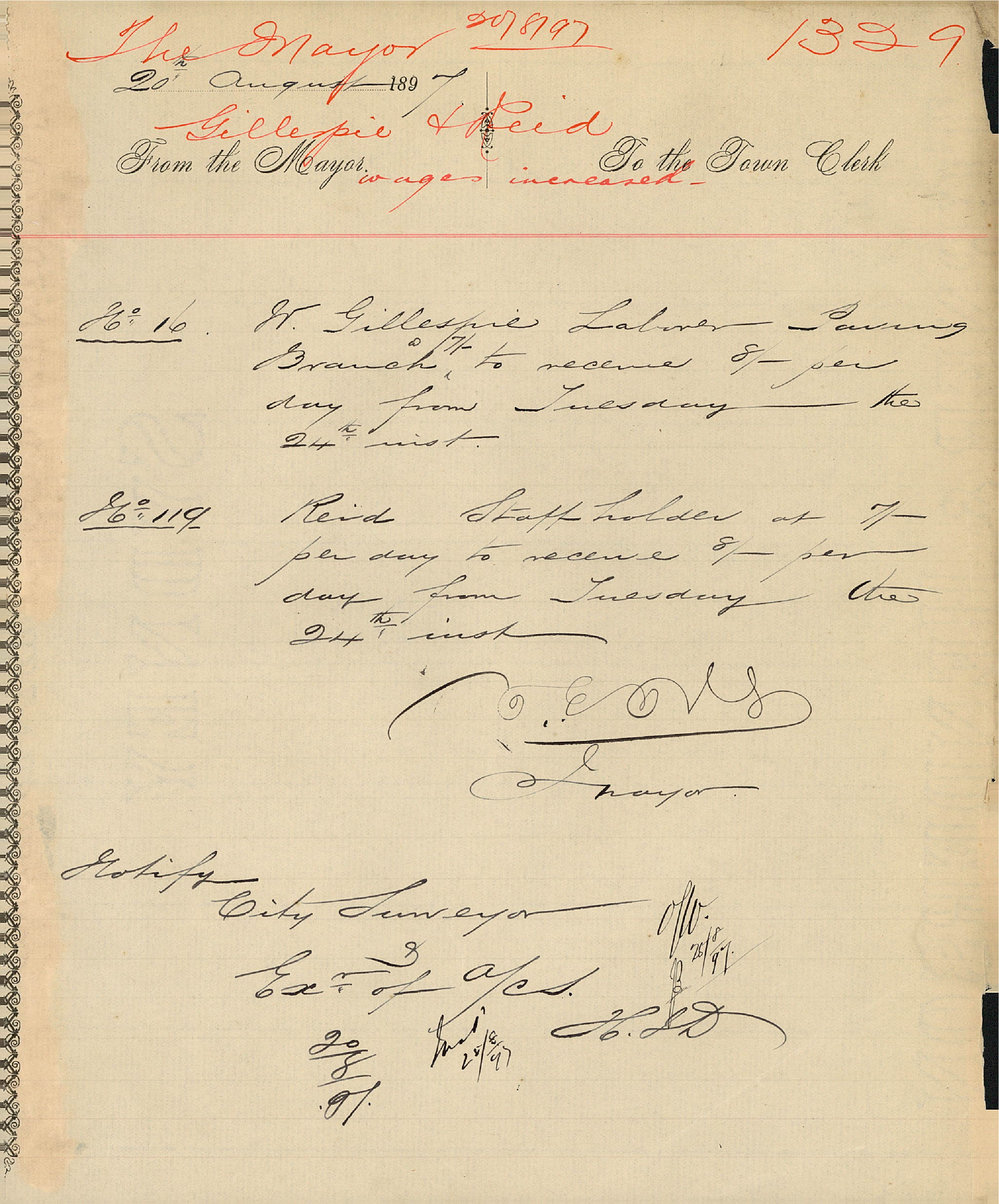 The Mayor 20/8/97 1329
20th August 1897
Gillespie & Reid
From the Mayor. To the Town Clerk
wages increased -
No. 16. W. Gillespie Laborer Paving
Branch @ 7/- to receive 8/- per
day from Tuesday the
24th inst.
No. 119 Reid Staffholder at 7/-
per day to receive 8/- per
day from Tuesday the
24th inst
Mayor.
Notify
City Surveyor
Exr of a/cs.
H.
20/8/97.